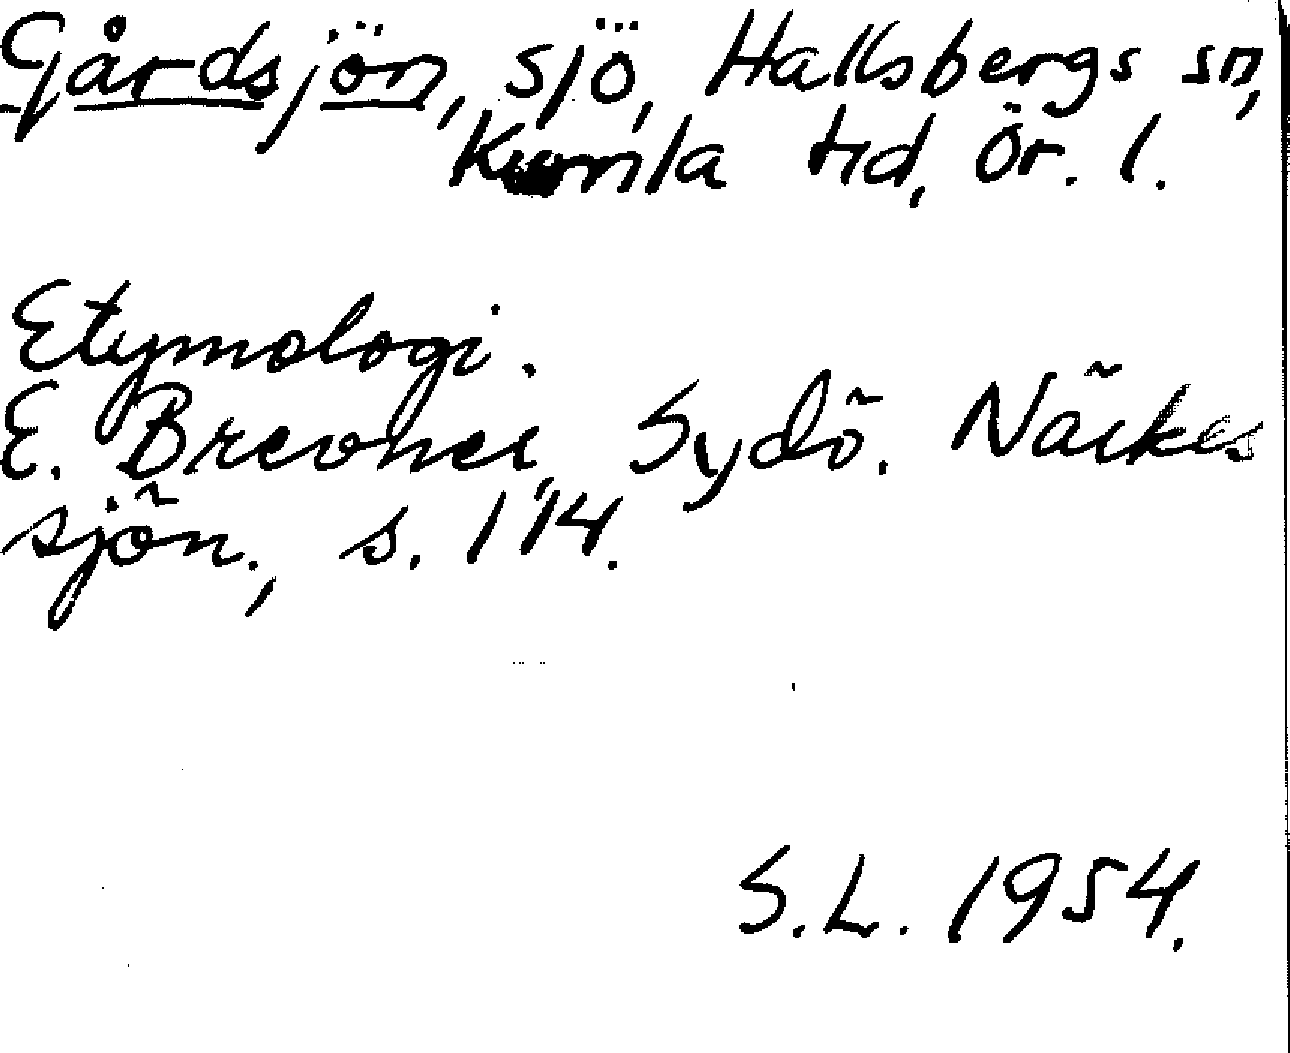 Gårdsjön, sjö, Hallsbergs sn,
Kumla hd, Ör. l.
Etymologi.
E. Brevner, Sydö. Närkes
sjön., s. 114.
S.L. 1954.